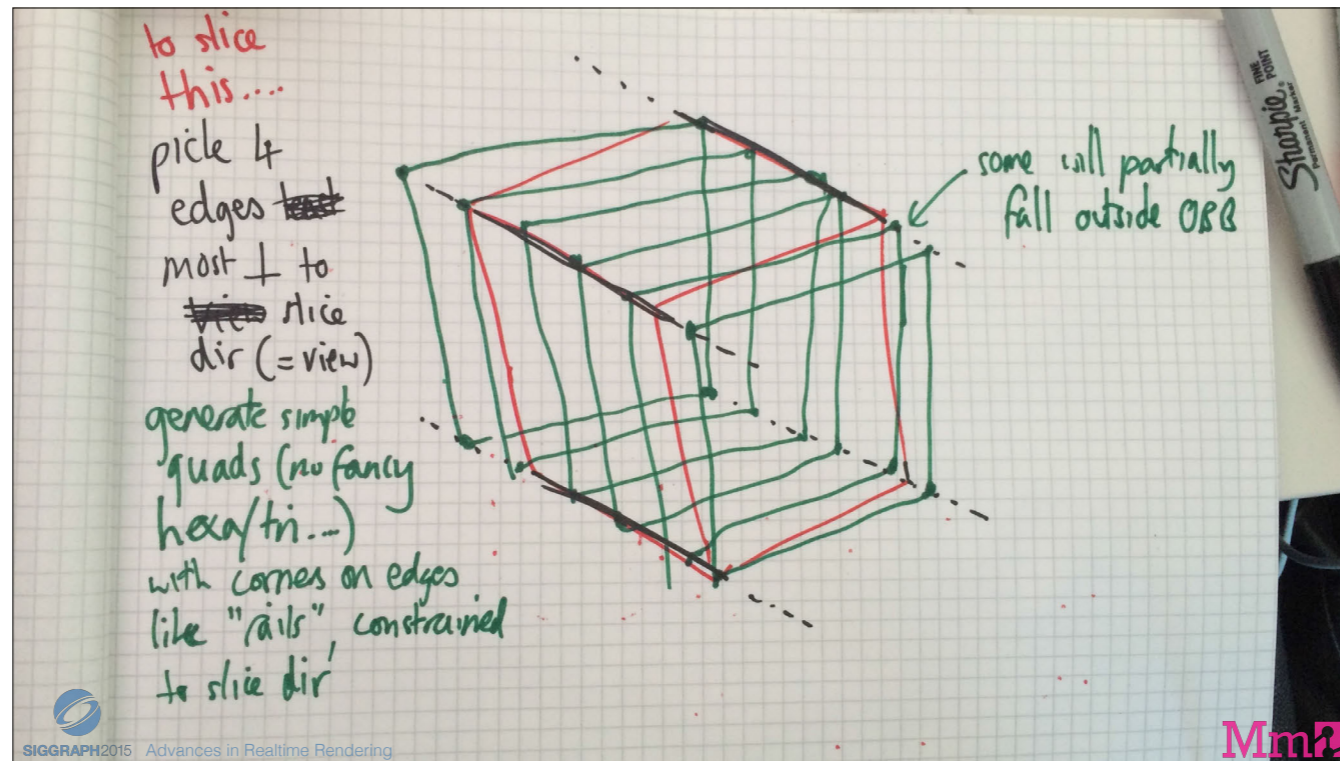 to slice
this....
pick 4
edges
most ⊥ to
slice
dir (=view)
generate simple
quads (no fancy
hexa/tri...)
with corners on edges
like "rails", constrained
to slice dir
some will partially
fall outside OBB
Sharpie.
FINE
POINT
Permanent Marker
SIGGRAPH2015 Advances in Realtime Rendering
Mm